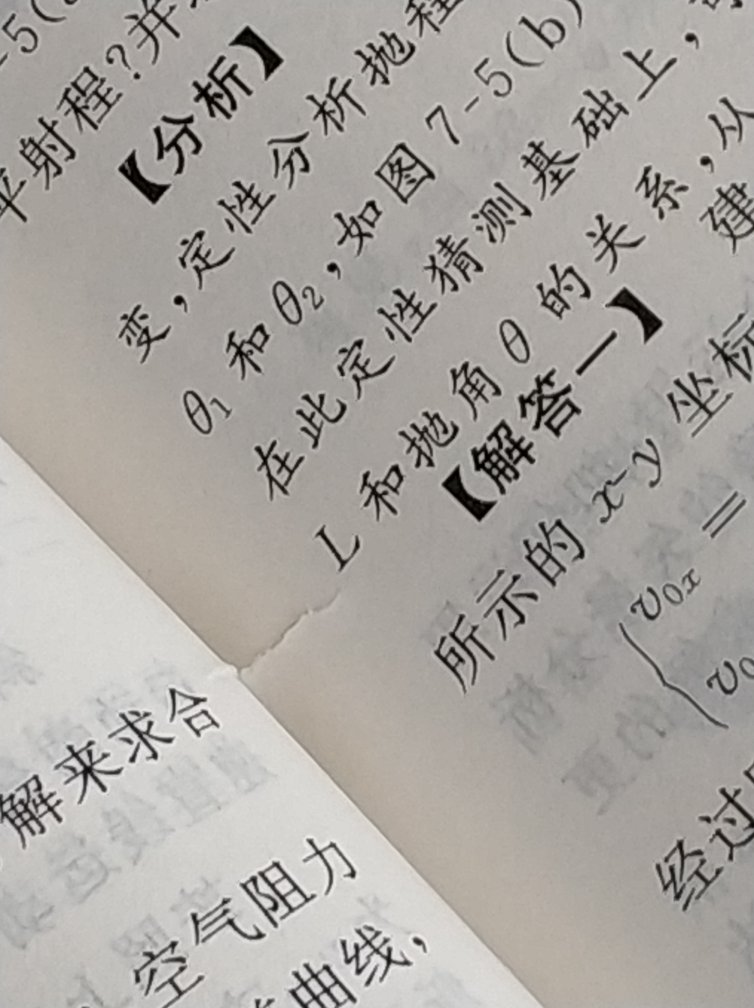 -5(
平射程?并
【分析】
变,定性分析抛程
θ₁和θ₂,如图7-5(b)
在此定性猜测基础上,
L和抛角θ的关系,从
【解答一】 建
所示的x-y坐标
v₀ₓ =
v₀
经过
解来求合
空气阻力
曲线,